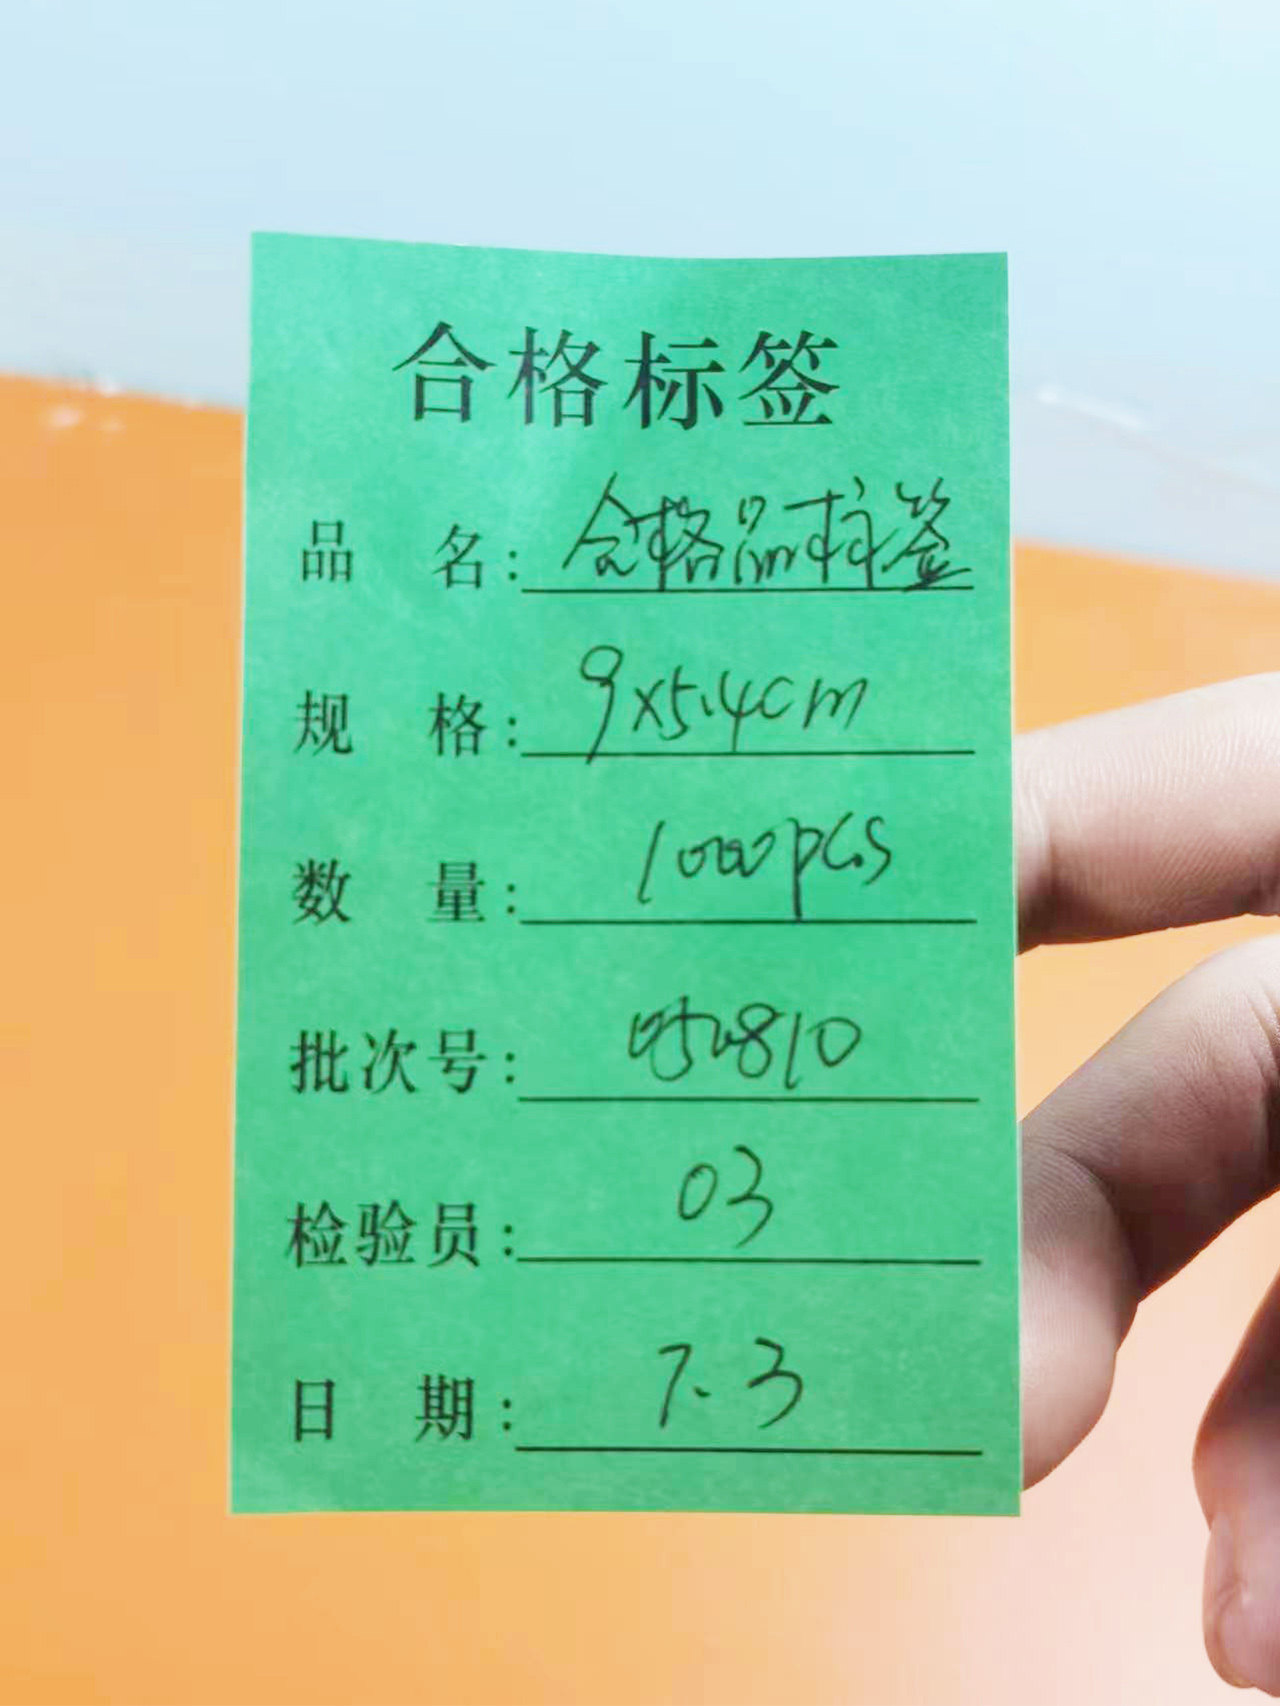 合格标签
品 名：合格品标签
规 格：9x5.4cm
数 量：1000pcs
批次号：050810
检验员：03
日 期：7.3